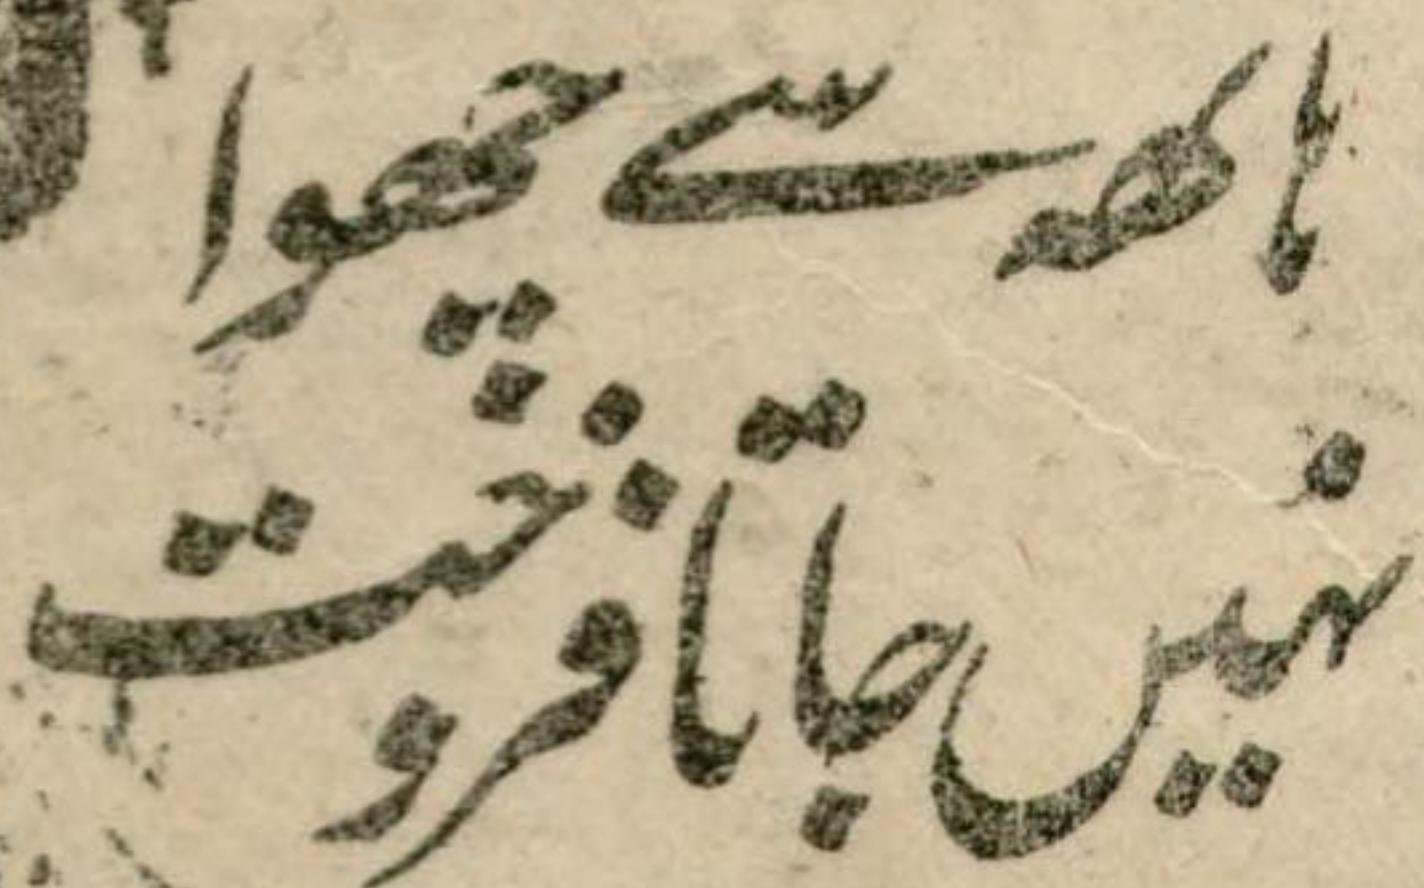 ہاتھہ سے چھوا
نہیں جاتا فروخت